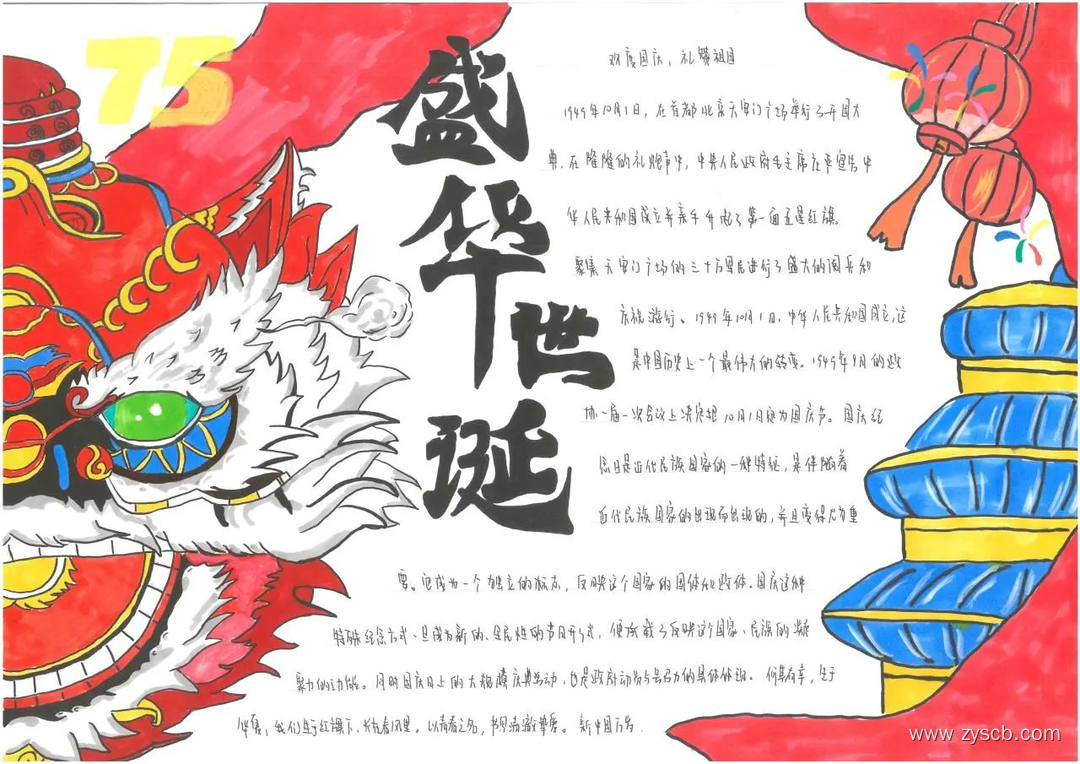 75
盛华世诞
欢度国庆，礼赞祖国
1949年10月1日，在首都北京天安门广场举行了开国大
典，在隆隆的礼炮声中，中央人民政府毛主席庄严宣告中
华人民共和国成立并亲手升起了第一面五星红旗。
聚集天安门广场的三十万军民进行了盛大的阅兵和
庆祝游行、1949年10月1日，中华人民共和国成立，这
是中国历史上一个最伟大的转变。1949年9月的政
协一届一次会议上决定把10月1日定为国庆节。国庆纪
念日是近代民族国家的一种特征，是伴随着
近代民族国家的出现而出现的，并且变得尤为重
要。它成为一个独立的标志，反映这个国家的国体和政体。国庆这种
特殊纪念方式一旦成为新的、全民性的节日形式，便承载了反映这个国家、民族的凝聚
聚力的功能。同时国庆日上的大规模庆典活动，也是政府动员与号召力的具体体现。何其有幸，生于
华夏，我们生于红旗下、长在春风里。以青春之名，书
新中国万岁
www.zyscb.com